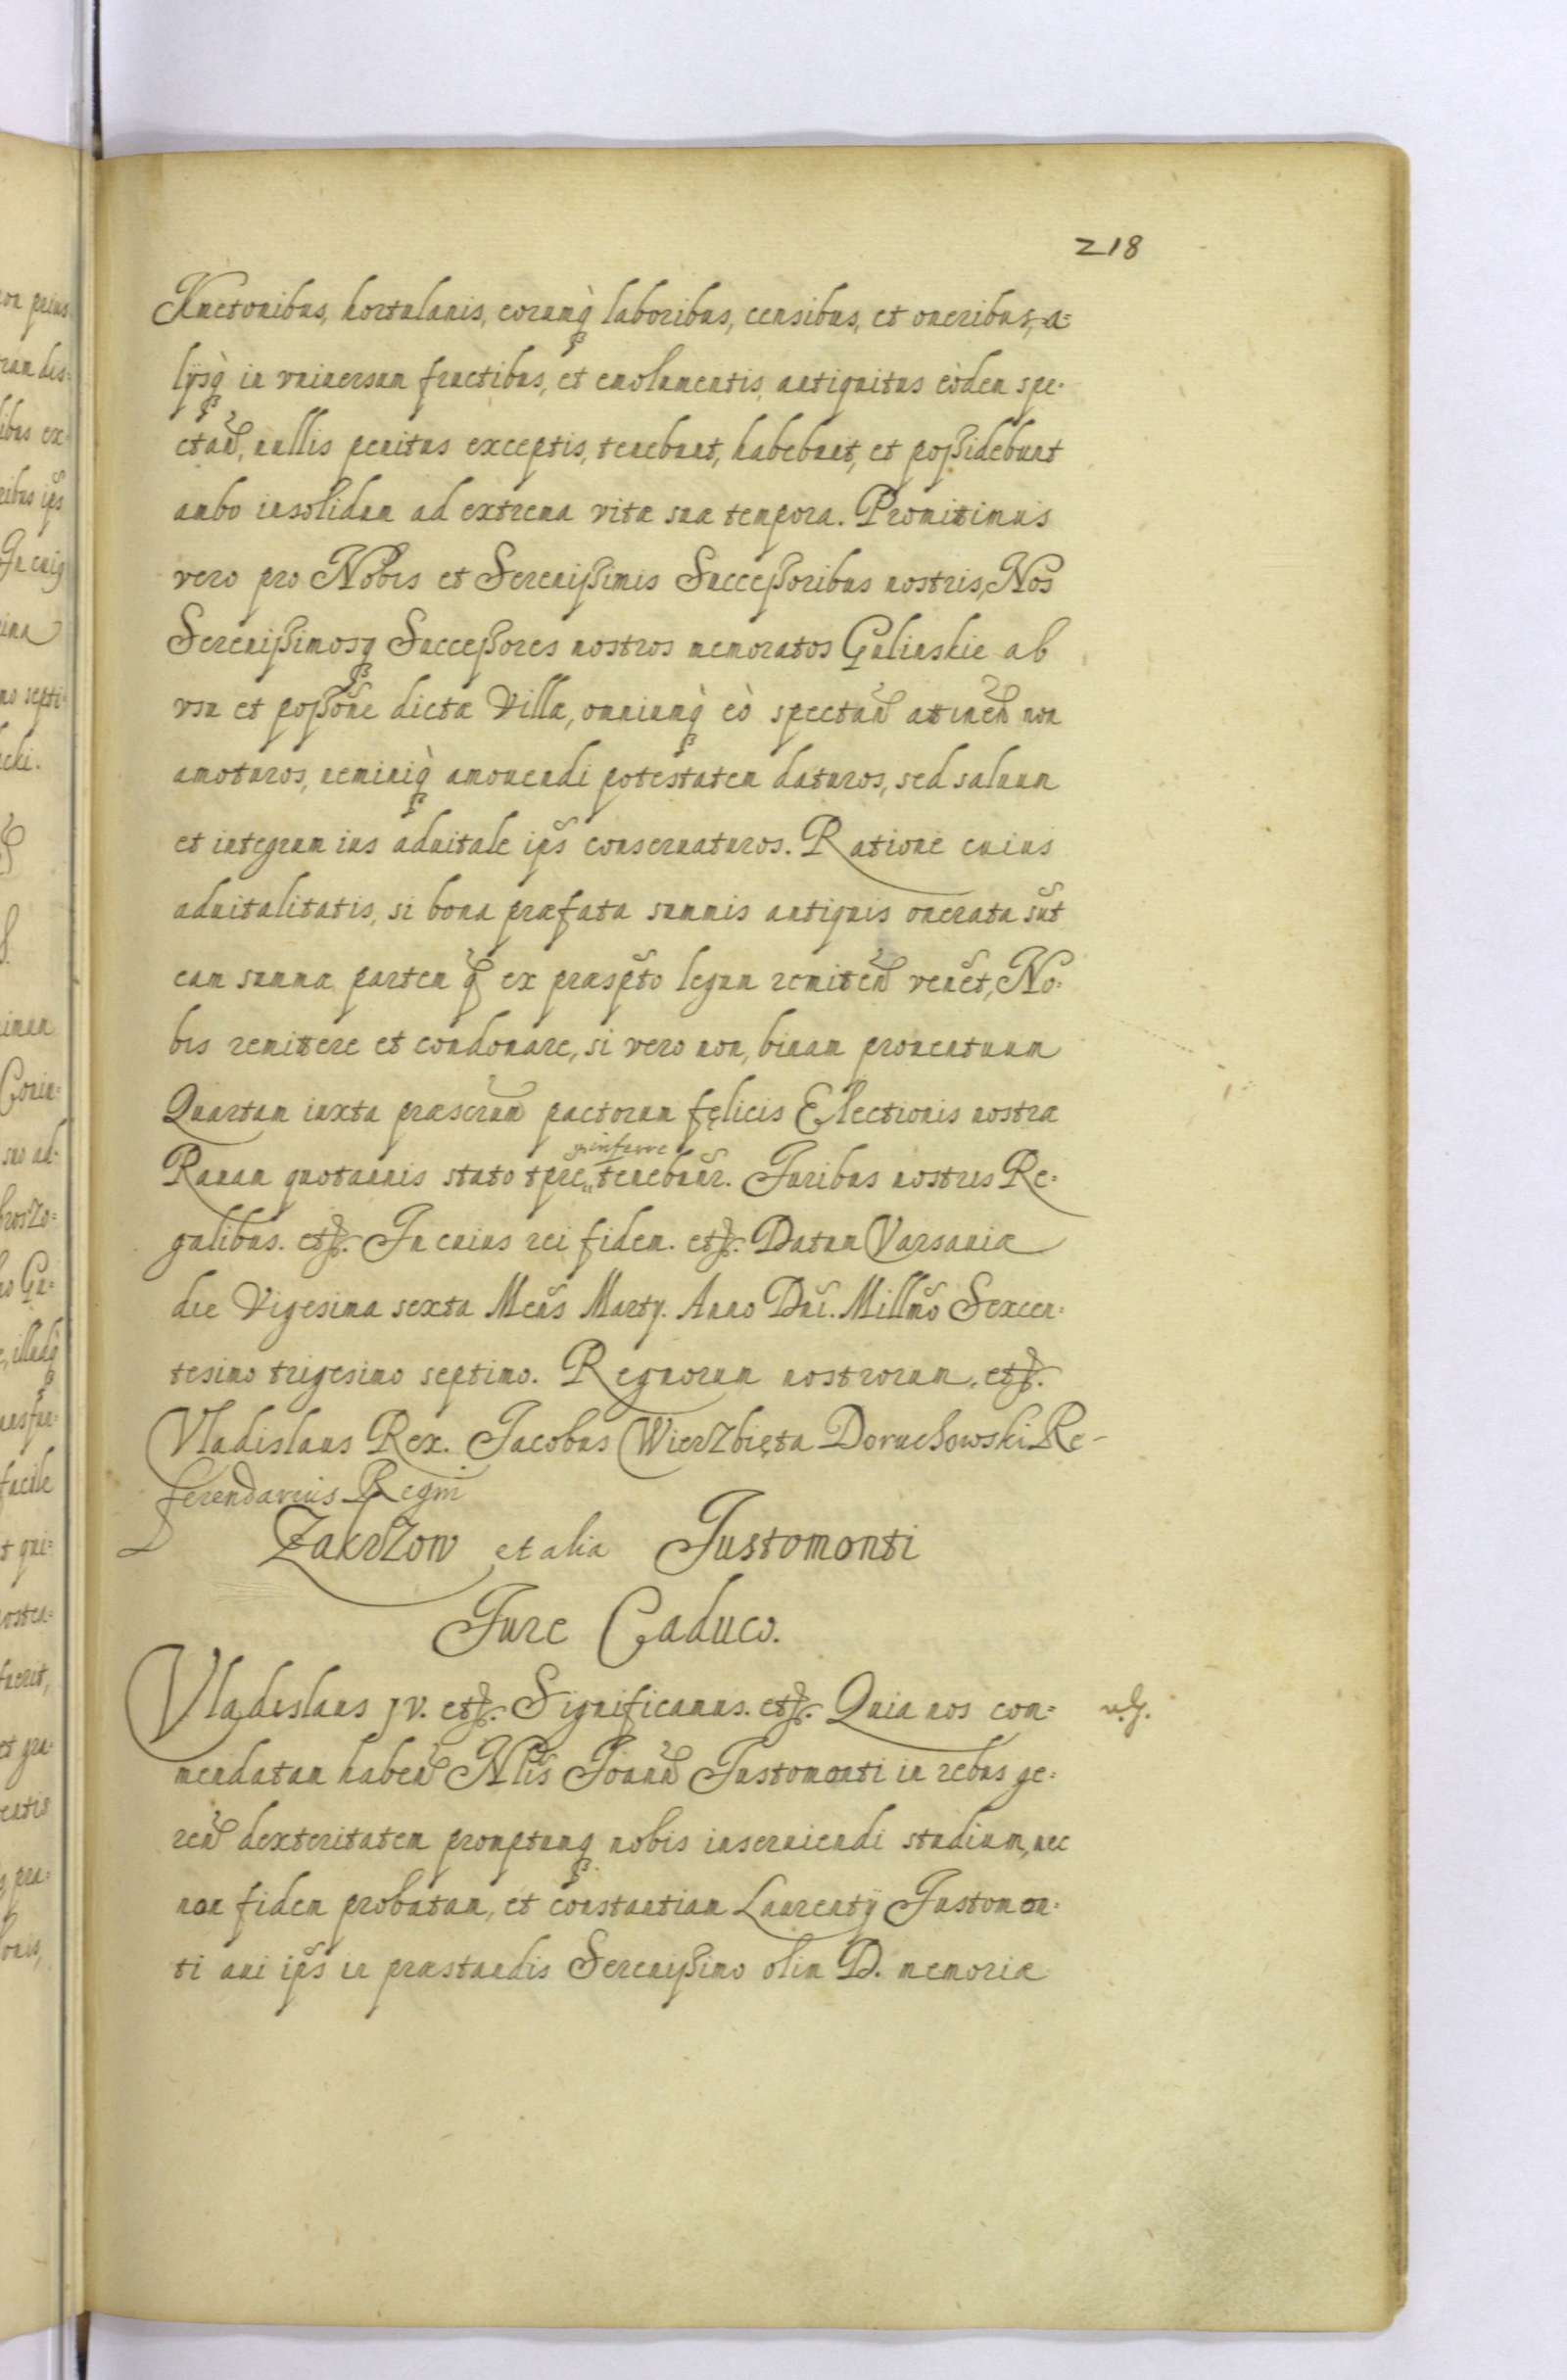 218
Kmetonibus, hortulanis, eorumq̀ laboribus, censibus, et oneribus, a=
lijsq̀ in vniuersum fructibus, et emolumentis, antiquitus eòdem spe-
ctan̄, nullis penitus exceptis, tenebunt, habebunt, et poßidebunt
ambo insolidum ad extrema vitæ suæ tempora. Promitimus
vero pro Nobis et Serenißimis Succeßoribus nostris, Nos
Serenißimosq Succeßores nostros memoratos Gulinskie ab
vsu et poßone dictæ Villæ, omniumq̀ eò spectan̄ atinen̄ non
amoturos, neminiq̀ amouendi potestatem daturos, sed saluum
et integrum ius aduitale ips̄ conseruaturos. Ratione cuius
aduitalitatis, si bona præfata summis antiquis onerata sūt
eam summæ partem q̄ ex præsp̄to legum remiten̄ venēt, No=
bis remitere et condonare, si vero non, binam prouentuum
Quartam iuxta præscrun̄ pactorum fęlicis Electionis nostræ
inferre
Rauam quotannis stato tp̄re tenebūr. Juribus nostris Re=
galibus. etꝭ. In cuius rei fidem. etꝭ. Datum Varsauiæ
die Vigesima sexta Men̄s Martÿ. Anno Dn̄i. Millm̄o Sexcen=
tesimo trigesimo septimo. Regnorum nostrorum. etꝭ.
Vladislaus Rex. Jacobus Wierzbięta Doruchowski Re-
ferendarius Regni
Zakrzow et alia Justomonti
Jure Caduco.
Vladislaus IV. etꝭ. Significamus. etꝭ. Quia nos com=
mendatam haben̄ Nlis̄ Joann̄ Justomonti in rebus ge=
ren̄ dexteritatem promptumq nobis inseruiendi studium, nec
non fidem probatam, et constantiam Laurentÿ Justomon=
ti aui ips̄ in præstandis Serenißimo olim D. memoriæ